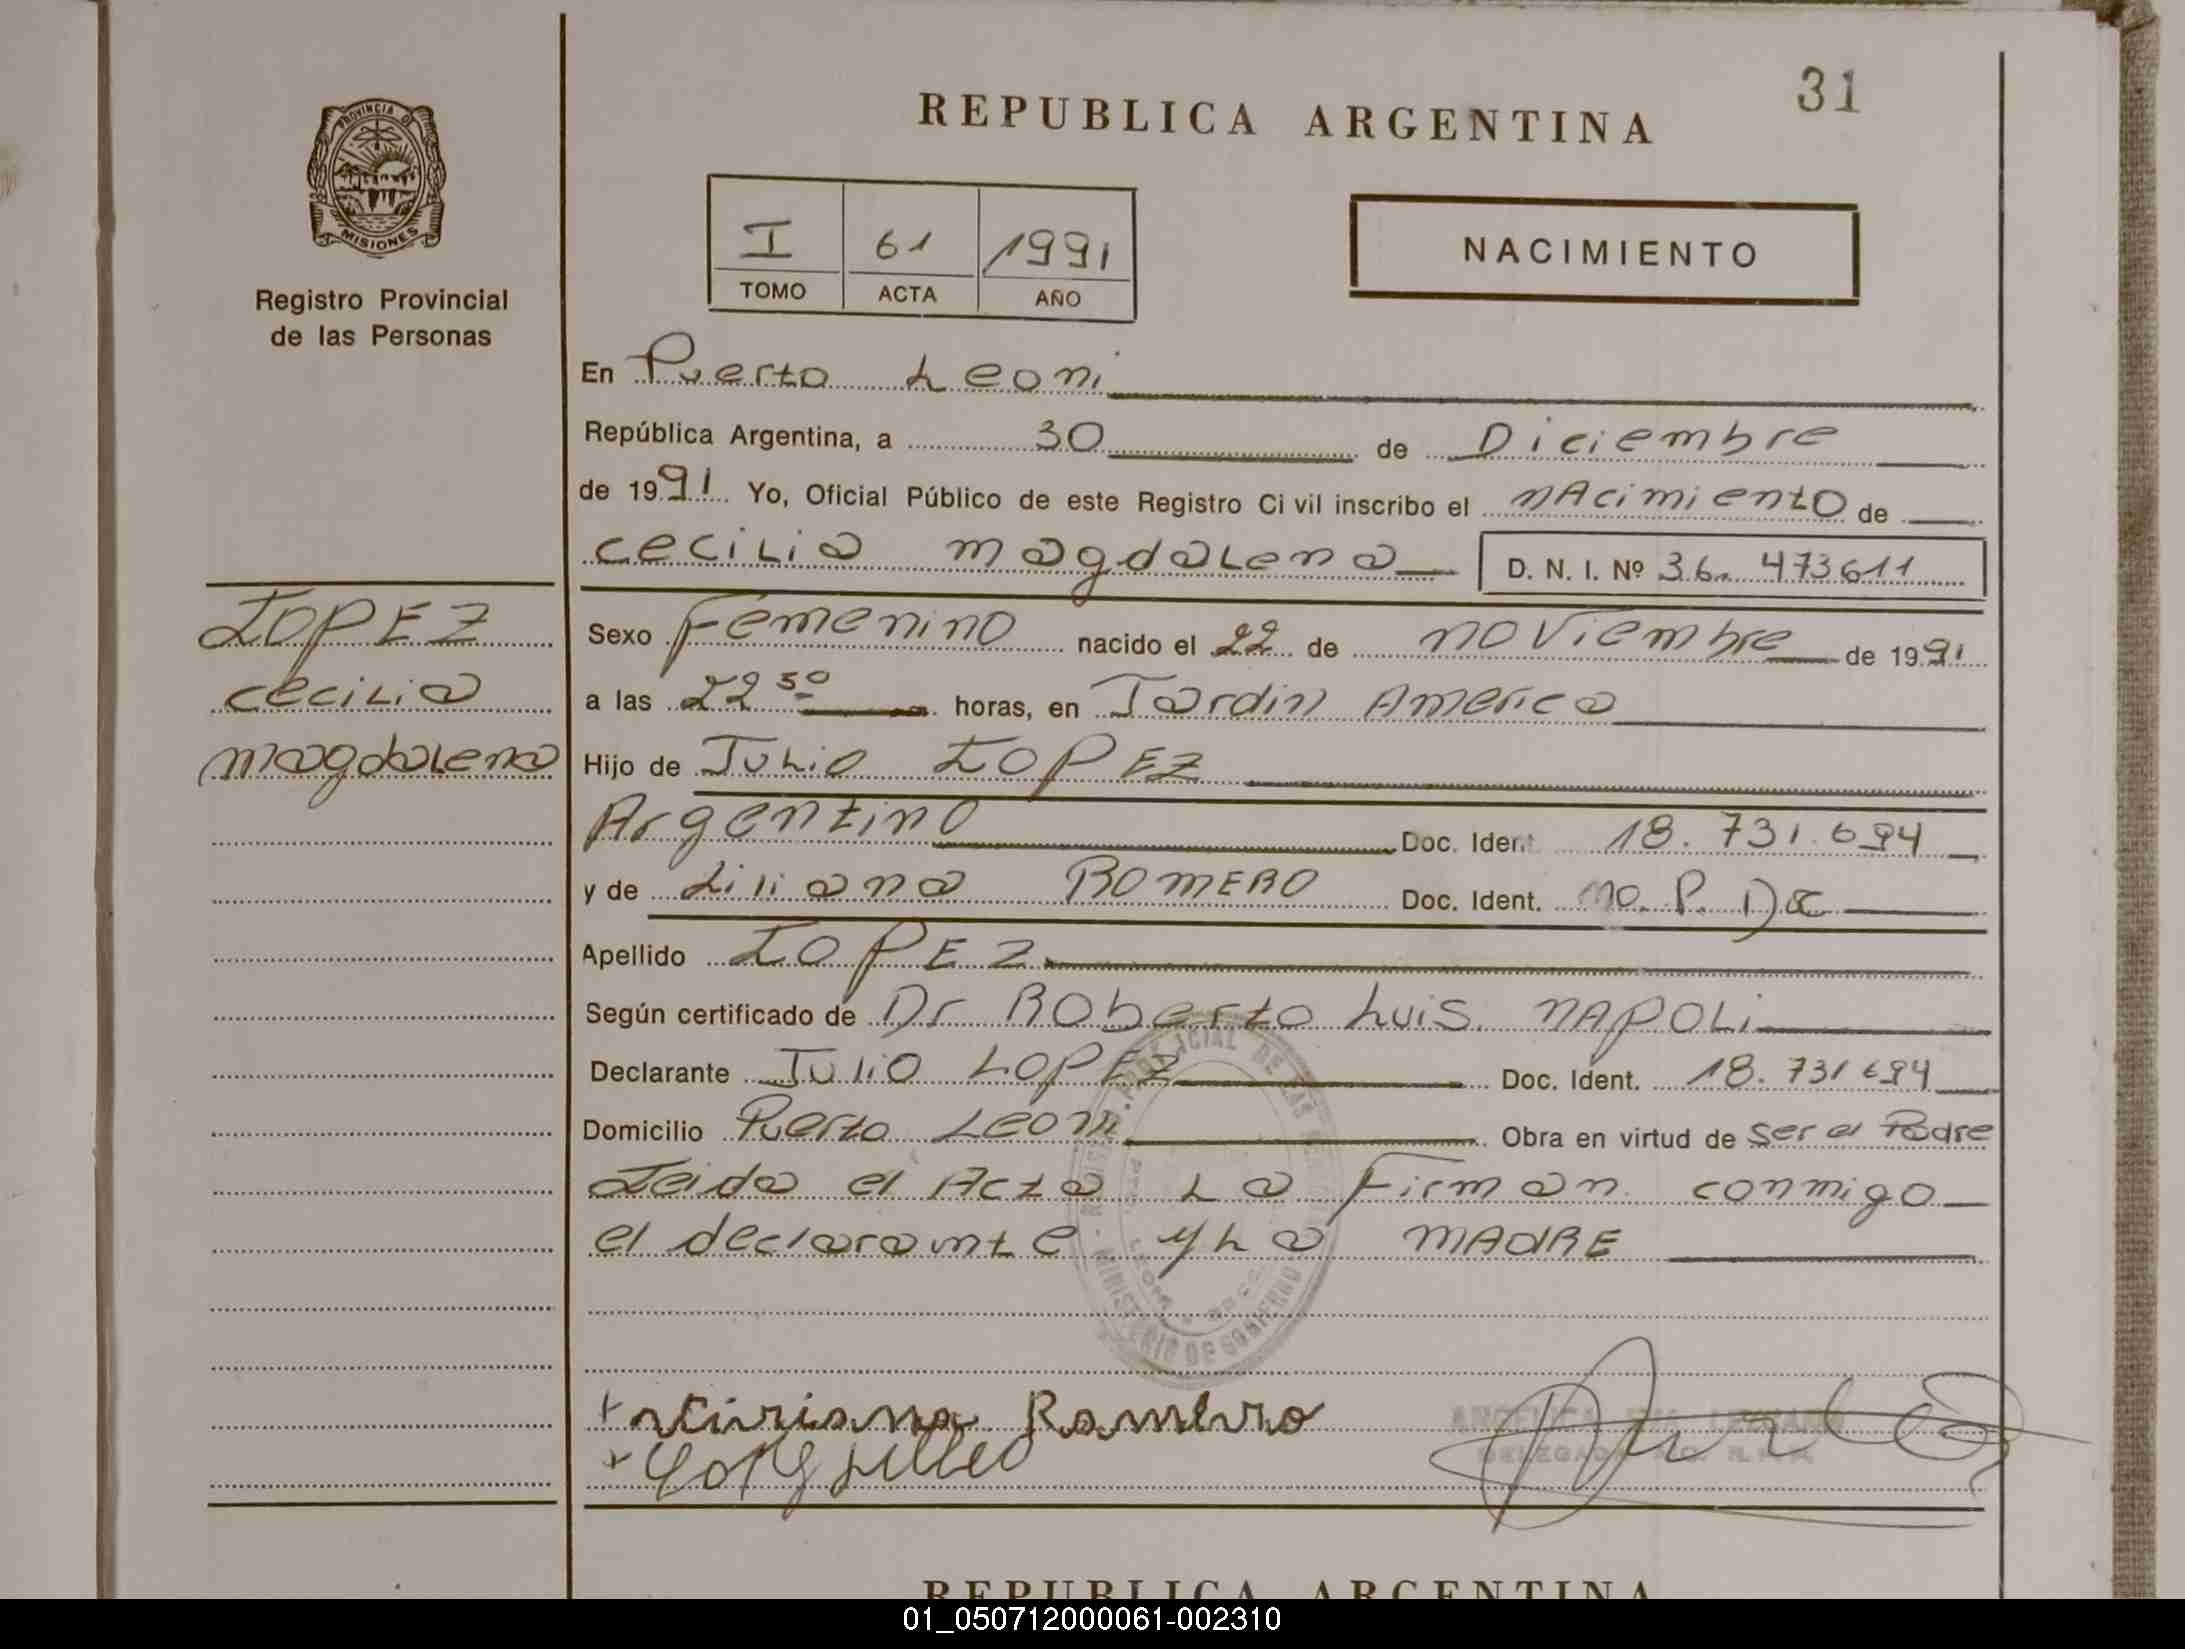 31
REPUBLICA ARGENTINA
PROVINCIA DE
MISIONES
Registro Provincial
de las Personas
I 61 1991
TOMO ACTA AÑO
NACIMIENTO
En Puerto Leoni
República Argentina, a 30 de Diciembre
de 1991 Yo, Oficial Público de este Registro Civil inscribo el nacimiento de
Cecilia Magdalena D. N. I. Nº 36. 473611
LOPEZ
Cecilia
Magdalena
Sexo Femenino nacido el 22 de noviembre de 1991
a las 22 50 horas, en Jardin America
Hijo de Julio LOPEZ
Argentino Doc. Ident 18. 731.694
y de Liliana ROMERO Doc. Ident. no. P. Doc
Apellido LOPEZ
Según certificado de Dr Roberto Luis NAPOLI
Declarante Julio LOPEZ Doc. Ident. 18. 731694
Domicilio Puerto Leoni Obra en virtud de Ser el Padre
Leida el Acta La Firman conmigo
el declarante y La MADRE
MINISTERIO DE GOBIERNO
Romero
REPUBLICA ARGENTINA
01_050712000061-002310